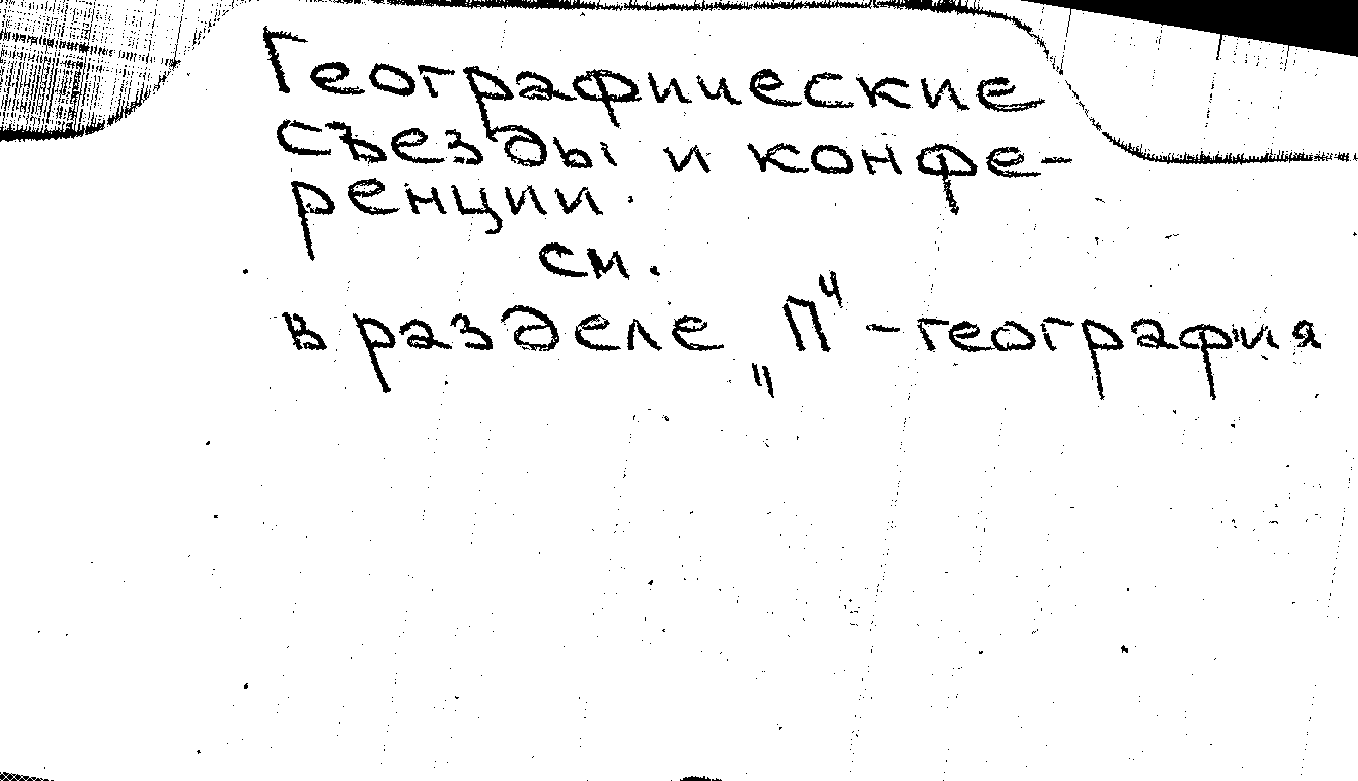 Географические
съезды и конфе-
ренции.
см.
в разделе „П“ - география